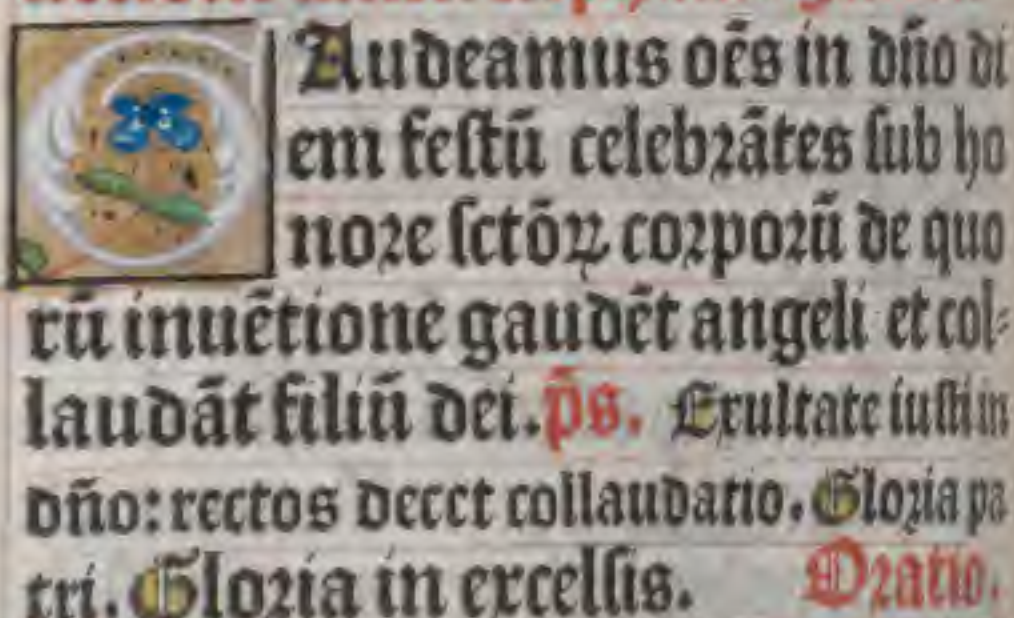 GAudeamus oēs in dn̄o di
em festū celebrātes sub ho
nore sctōꝝ corporū de quo
rū inuētione gaudēt angeli et col⸗
laudāt filiū dei. p̄s. Exultate iusti in
dn̄o: rectos decet collaudatio. Gloria pa
tri. Gloria in excelsis. Oratio.